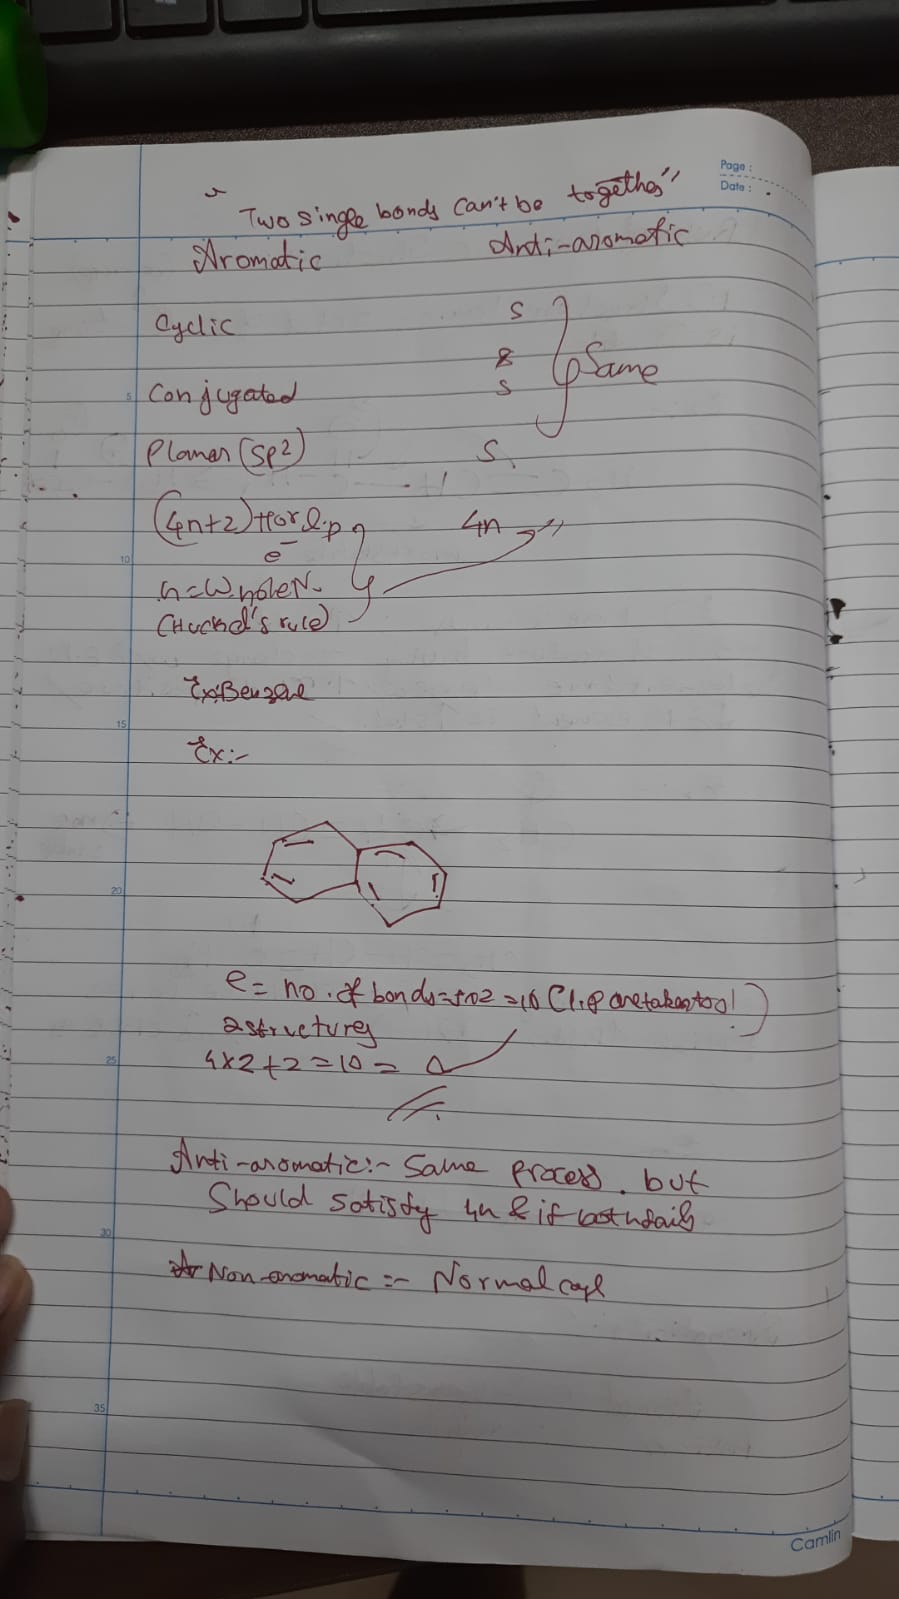 Page :
Date :
"Two single bonds can't be together"
Aromatic Anti-aromatic
Cyclic S
8
Same
Conjugated S
Planar (SP2) S
(4n+2) π or l.p 4n
e-
n = Whole N.
(Huckel's rule)
Ex: Benzene
Ex:-
e = no. of bonds = 5×2 = 10 (l.p are taken too!)
2 structures
4×2+2=10=
Anti-aromatic:- Same process. but
Should satisfy 4n & if both fails
Non-aromatic :- Normal
5
10
15
20
25
30
35
Camlin